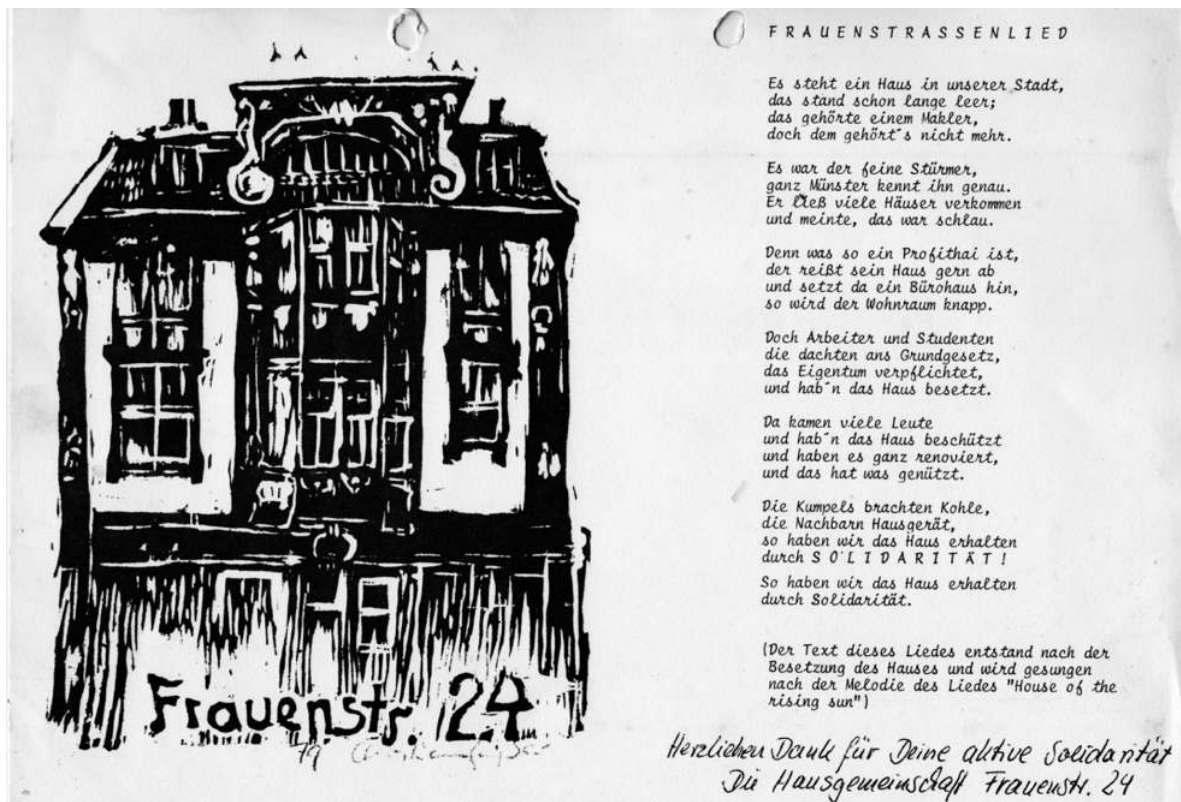 Frauenstr. 24
79
FRAUENSTRASSENLIED
Es steht ein Haus in unserer Stadt,
das stand schon lange leer;
das gehörte einem Makler,
doch dem gehört´s nicht mehr.
Es war der feine Stürmer,
ganz Münster kennt ihn genau.
Er ließ viele Häuser verkommen
und meinte, das war schlau.
Denn was so ein Profithai ist,
der reißt sein Haus gern ab
und setzt da ein Bürohaus hin,
so wird der Wohnraum knapp.
Doch Arbeiter und Studenten
die dachten ans Grundgesetz,
das Eigentum verpflichtet,
und hab´n das Haus besetzt.
Da kamen viele Leute
und hab´n das Haus beschützt
und haben es ganz renoviert,
und das hat was genützt.
Die Kumpels brachten Kohle,
die Nachbarn Hausgerät,
so haben wir das Haus erhalten
durch SOLIDARITÄT!
So haben wir das Haus erhalten
durch Solidarität.
(Der Text dieses Liedes entstand nach der
Besetzung des Hauses und wird gesungen
nach der Melodie des Liedes "House of the
rising sun")
Herzlichen Dank für Deine aktive Solidarität
Die Hausgemeinschaft Frauenstr. 24